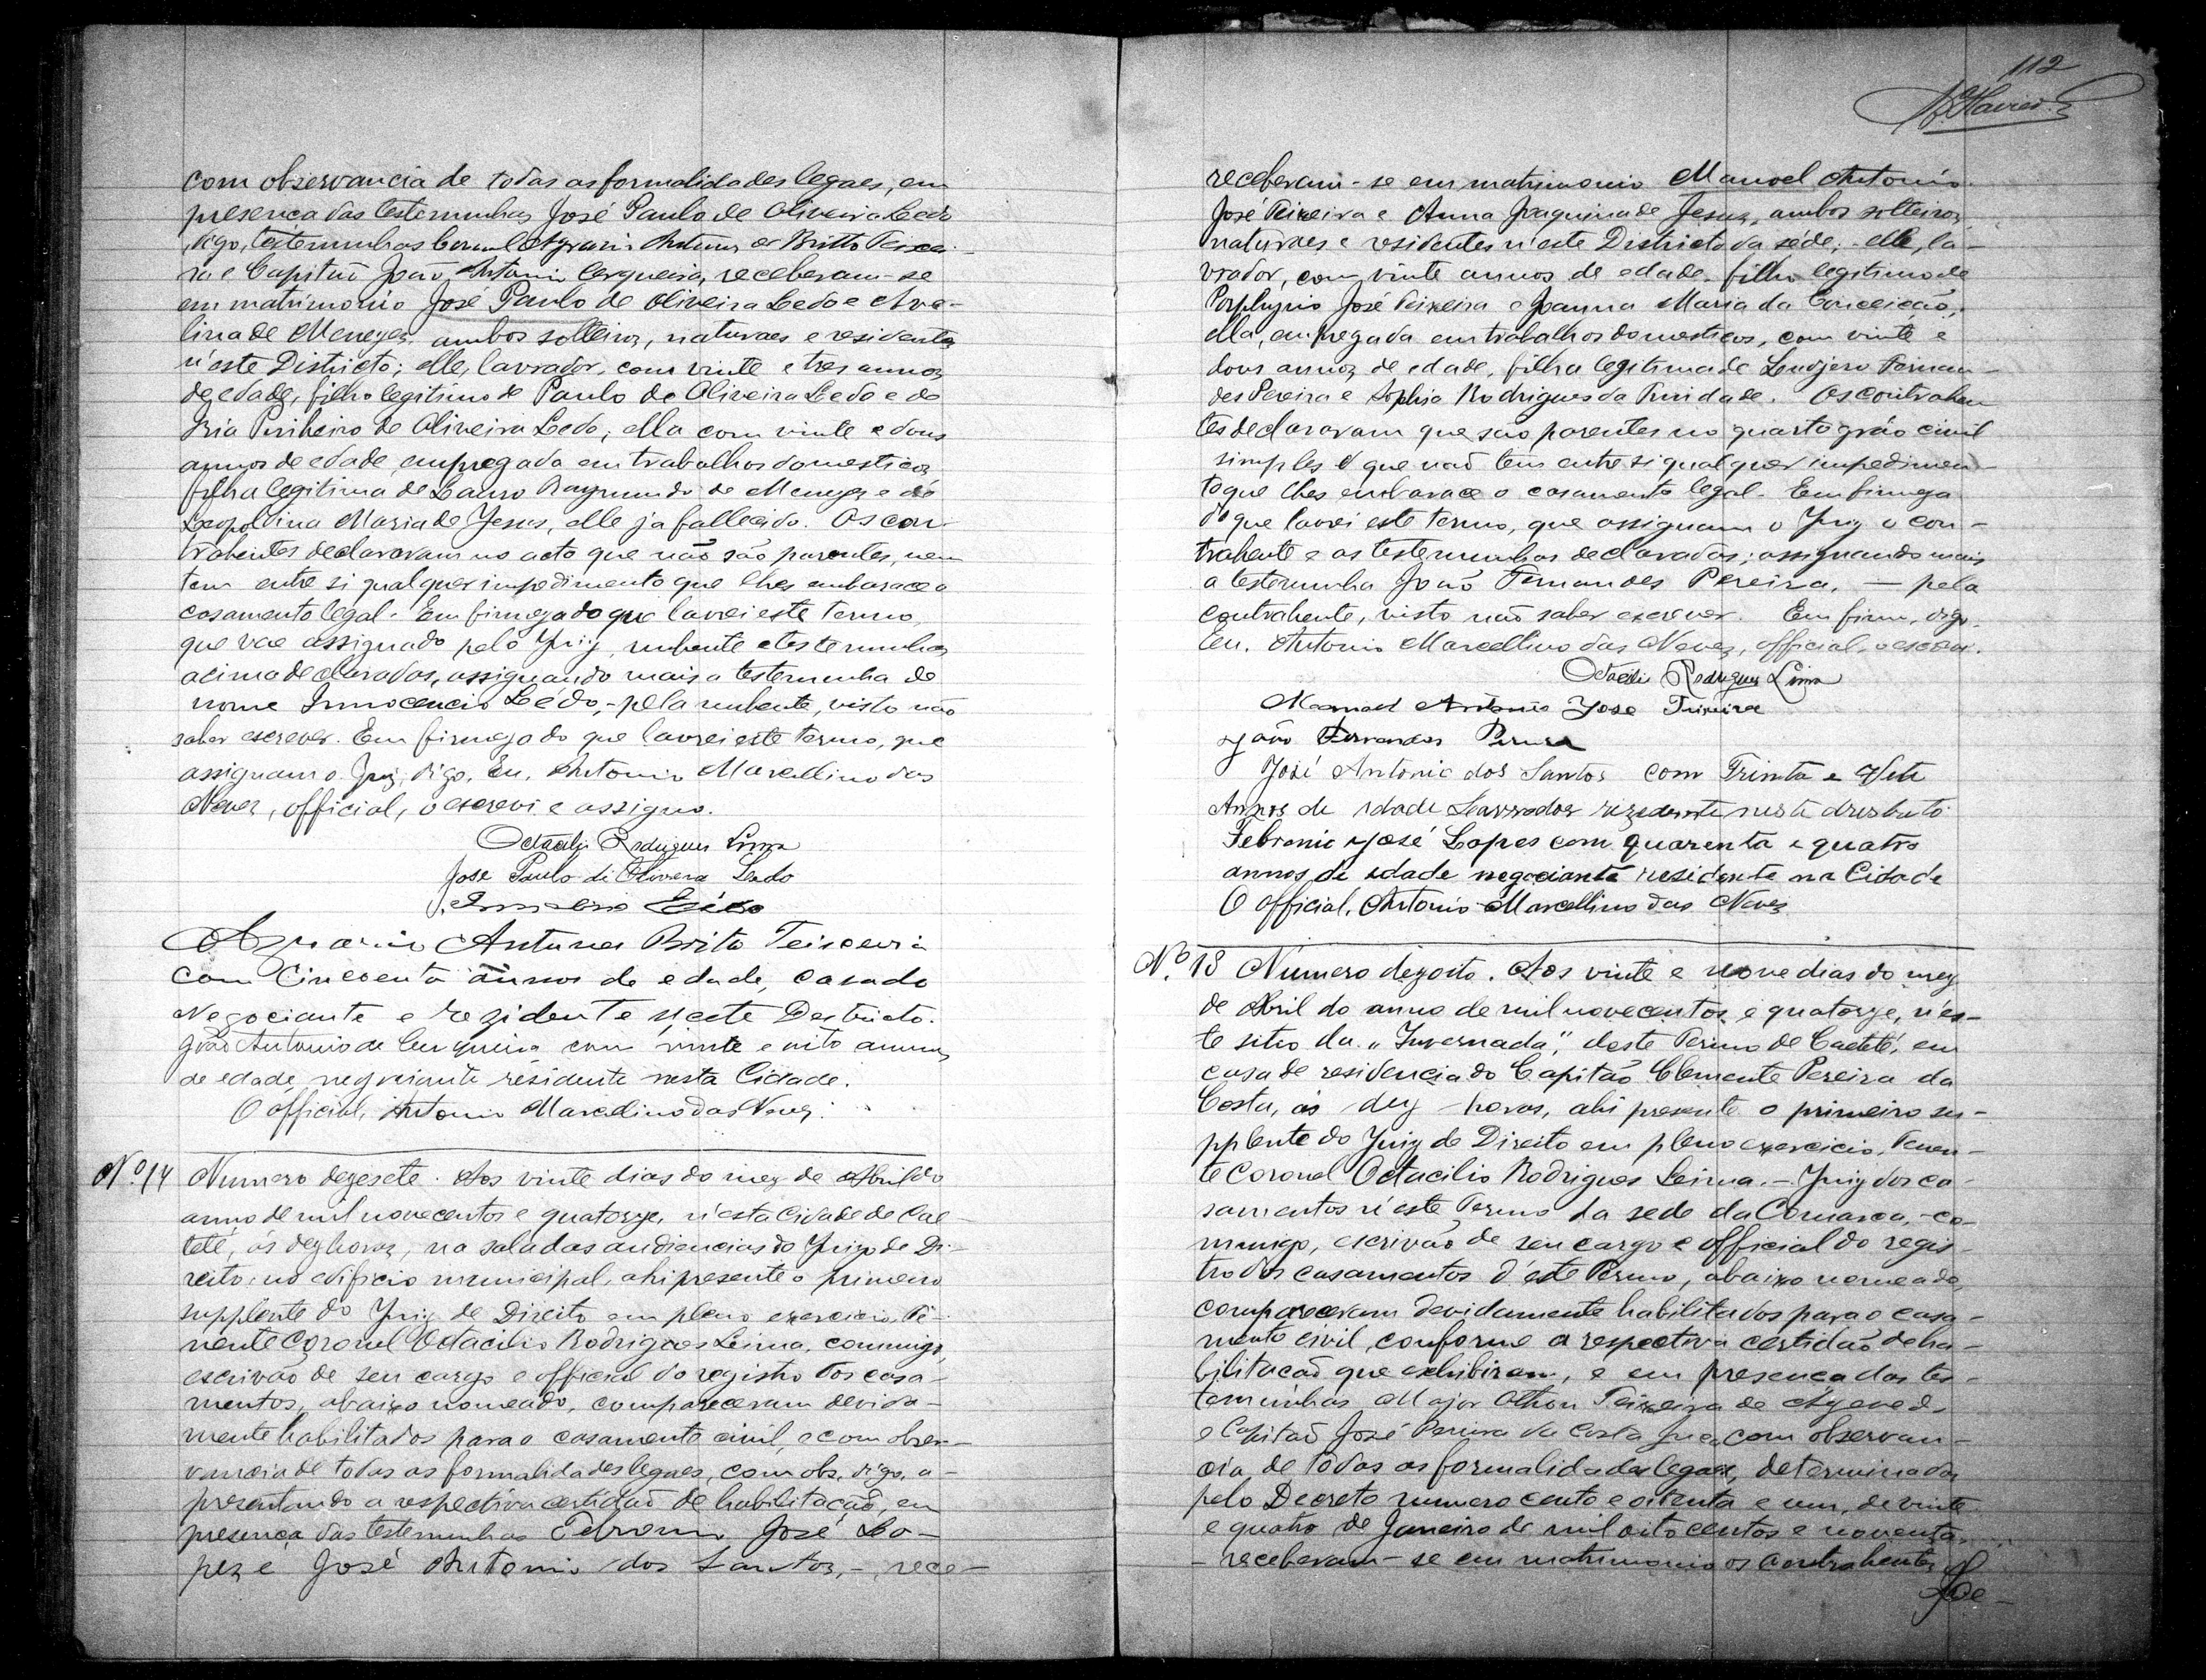 com observancia de todas as formalidades legaes, em
presença das testemunhas José Paulo de Oliveira Ledo
, digo, testemunhas Coronel Agrario Antunes de Britto Teixei-
ra e Capitão João Antonio Cerqueira, receberam-se
em matrimonio José Paulo de Oliveira Ledo e Ave-
lina de Menezes, ambos solteiros, naturaes e residentes
n'este Districto; elle, lavrador, com vinte e tres annos
de edade, filho legitimo de Paulo de Oliveira Ledo e de
Pinheiro de Oliveira Ledo; ella com vinte e dous
annos de edade, empregada em trabalhos domesticos
filha legitima de Lauro Raymundo de Menezes e de
Leopoldina Maria de Jesus, elle já fallecido. Os con-
trahentes declararam no acto que não são parentes, nem
tem entre si qualquer impedimento que lhes embarace o
casamento legal. Em firmeza do que lavrei este termo,
que vae assignado pelo Juiz, nubente e testemunhas
acima declaradas, assignando mais a testemunha de
nome Innocencio Lédo, - pela nubente, visto não
saber escrever. Em firmeza do que lavrei este termo, que
assignam o Juiz, digo, Eu, Antonio Marcellino das
Neves, official, o escrevi e assigno.
Octacilio Rodrigues Lima
José Paulo di Oliveira Ledo
Agrario Antunes Brito Teixeira
com Cincoenta annos de edade, casado
Negociante e rezidente neste Destricto.
João Antonio de Cerqueira com vinte e oito annos
de edade, negociante residente nesta Cidade.
O official, Antonio Marcelino das Neves.
Nº 17 Numero dezesete. Aos vinte dias do mez de Abril do
anno de mil novecentos e quatorze, n'esta Cidade de Cae-
teté, ás dez horas, na sala das audiencias do Juizo de Di-
reito, no edificio municipal, ahi presente o primeiro
supplente do Juiz de Direito em pleno exercicio, Te-
nente Coronel Octacilio Rodrigues Leima, commigo,
escrivão de seu cargo e official do registro dos casa-
mentos, abaixo nomeado, compareceram devida-
mente habilitados para o casamento civil, e com obser-
vancia de todas as formalidades legaes, com obs, digo, a-
presentando a respectiva certidão de habilitação, em
presença das testemunhas Febronio José Lo-
pes e José Antonio dos Santos, - rece-
112
receberam-se em matrimonio Manoel Antonio
José Teixeira e Anna Joaquina de Jesus, ambos solteiros
naturaes e residentes n'este Districto da séde; - elle, la-
vrador, com vinte annos de edade, filho legitimo de
Porphyrio José Teixeira e Joanna Maria da Conceição;
ella, empregada em trabalhos domesticos, com vinte e
dous annos de edade, filha legitima de Fernan-
des Pereira e Sophia Rodrigues da Trindade. Os contrahen
tes declararam que são parentes no quarto gráo civil
simples e que não tem entre si qualquer impedimen-
to que lhes embarace o casamento legal. Em firmeza
do que lavrei este termo, que assignam o Juiz o con-
trahente e as testemunhas declaradas; assignando mais
a testemunha João Fernandes Pereira, - pela
contrahente, visto não saber escrever. Em firm, digo.
Eu, Antonio Marcellino das Neves, official, o escrevi.
Octacilio Rodrigues Lima
Manoel Antonio José Teixeira
João Fernandes Pereira
José Antonio dos Santos com Trinta e Sete
Annos de idade Lavrador rezedente neste distrito
Febronio José Lopes com quarenta e quatro
annos de edade negociante residente na Cidade
O official, Antonio Marcellino das Neves
Nº 18 Numero dezoito. Aos vinte e nove dias do mez
de Abril do anno de mil novecentos e quatorze, n'es-
te sitio da "Invernada", deste Termo de Caeteté, em
casa de residencia do Capitão Clemente Pereira da
Costa, ás dez horas, ahi presente o primeiro su-
pplente do Juiz de Direito em pleno exercicio, Tenen-
te Coronel Octacilio Rodrigues Leima. - Juiz dos ca-
samentos n'este Termo da sede da Comarca, - co-
mmigo, escrivão de seu cargo e official do regis-
tro dos casamentos d'este Termo, abaixo nomeado,
compareceram devidamente habilitados para o casa-
mento civil, conforme a respectiva certidão de ha-
bilitação que exhibiram, e em presença das tes-
temunhas Major Othon Teixeira de Azevedo
e Capitão José Pereira da Costa com observan-
cia de todas as formalidades legaes, determinadas
pelo Decreto numero cento e oitenta e um, de vinte
e quatro de Janeiro de mil oito centos e noventa,
- receberam-se em matrimonio os contrahentes